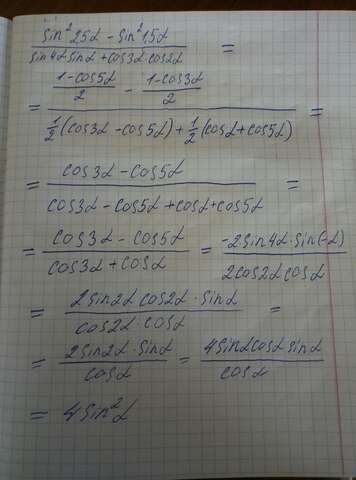 (sin²2,5α - sin²1,5α)/(sin4α sinα + cos3α cos2α) =
= ((1-cos5α)/2 - (1-cos3α)/2)/(½(cos3α - cos5α) + ½(cosα + cos5α)) =
= (cos3α - cos5α)/(cos3α - cos5α + cosα + cos5α) =
= (cos3α - cos5α)/(cos3α + cosα) = (-2sin4α · sin(-α))/(2cos2α cosα)
= (2sin2α cos2α · sinα)/(cos2α cosα) =
= (2sin2α · sinα)/cosα = (4sinα cosα sinα)/cosα
= 4sin²α